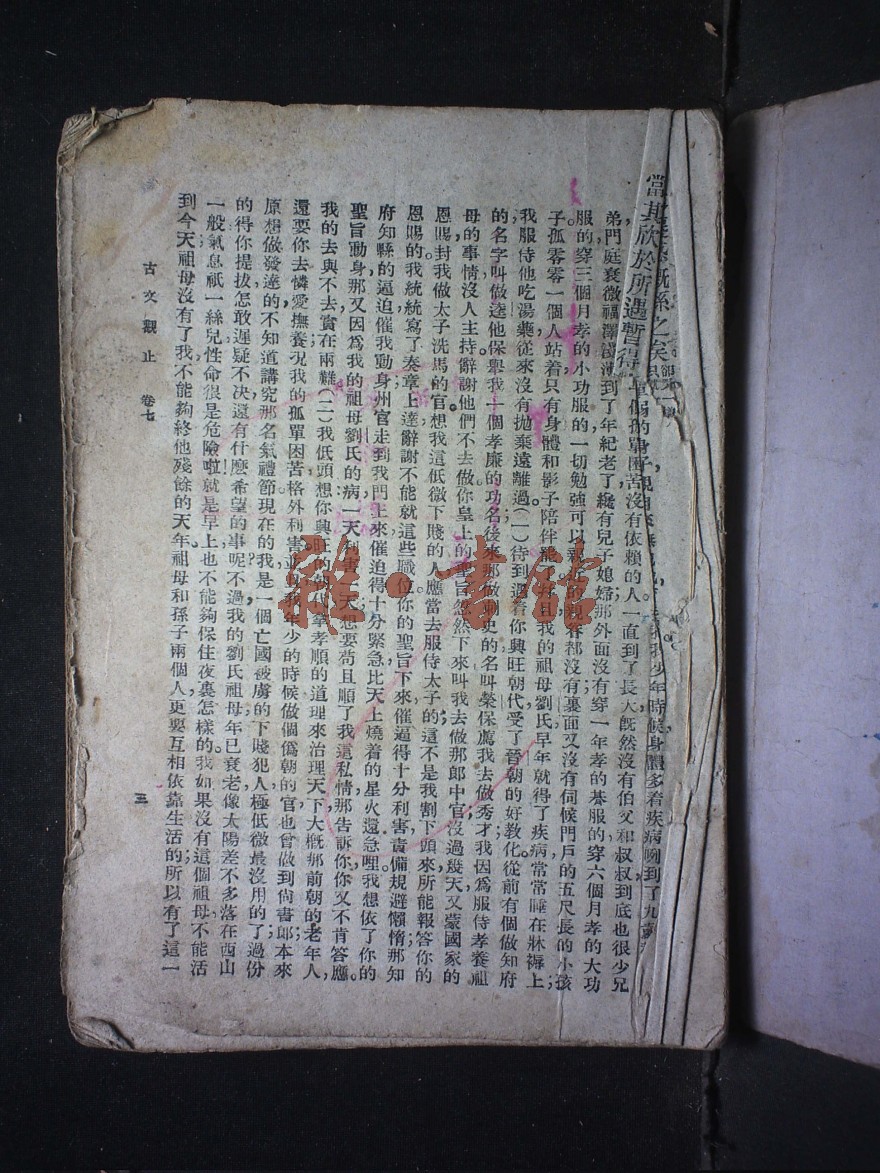 當其欣於所遇暫得
弟門庭衰微福澤淺薄到了年紀老了纔有兒子媳婦那外面沒有穿一年孝的朞服的穿六個月孝的大功
服的穿三個月孝的小功服的一切勉強可以親近的親眷都沒有裏面又沒有伺候門戶的五尺長的小孩
子孤零零一個人站着只有身體和影子陪伴罷了並且我的祖母劉氏早年就得了疾病常常睡在牀褥上;
我服侍他吃湯藥從來沒有拋棄遠離過(一)待到遇着你興旺朝代受了晉朝的好教化從前有個做知府
的名字叫做逵他保舉我一個孝廉的功名後來那做刺史的名叫榮保薦我去做秀才我因爲服侍孝養祖
母的事情沒人主持辭謝他們不去做你皇上的聖旨忽然下來叫我去做那郎中官沒過幾天又蒙國家的
恩賜封我做太子洗馬的官想我這低微下賤的人應當去服侍太子的這不是我割下頭來所能報答你的
恩賜的我統統寫了奏章上達辭謝不能就這些職位你的聖旨下來催逼得十分利害責備規避懶惰那知
府知縣的逼迫催我動身州官走到我門上來催迫得十分緊急比天上燒着的星火還急哩我想依了你的
聖旨動身那又因爲我的祖母劉氏的病一天利害一天想要苟且順了我這私情那告訴你你又不肯答應。
我的去與不去實在兩難(二)我低頭想你興旺的朝代拿孝順的道理來治理天下大概那前朝的老年人,
還要你去憐愛撫養況我的孤單困苦格外利害並且我年少的時候做個僞朝的官也曾做到尙書郎本來
原想做發達的不知道講究那名氣禮節現在的我是一個亡國被虜的下賤犯人極低微最沒用的了過份
的得你提拔怎敢遲疑不决還有什麼希望的事呢不過我的劉氏祖母年已衰老像太陽差不多落在西山
一般氣息祇一絲兒性命很是危險啦就是早上也不能夠保住夜裏怎樣的我如果沒有這個祖母不能活
到今天祖母沒有了我不能夠終他殘餘的天年祖母和孫子兩個人更要互相依靠生活的所以有了這一
古文觀止 卷七
三
雜·書館